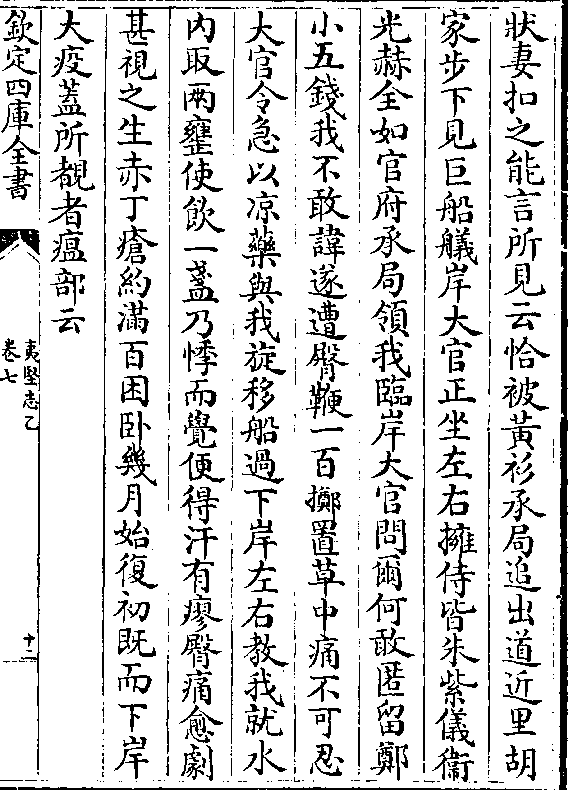 狀妻扣之能言所見云恰被黄衫承局追出道近里胡
家步下見巨船艤岸大官正坐左右擁侍皆朱紫儀衞
光赫全如官府承局領我臨岸大官問爾何敢匿留鄭
小五錢我不敢諱遂遭臀鞭一百擲置草中痛不可忍
大官令急以凉藥與我旋移船過下岸左右教我就水
内取兩甕使飲一盞乃悸而覺便得汗有瘳臀痛愈劇
甚視之生赤丁瘡約滿百困卧幾月始復初既而下岸
大疫蓋所覩者瘟部云
欽定四庫全書
夷堅志乙
卷七
十二